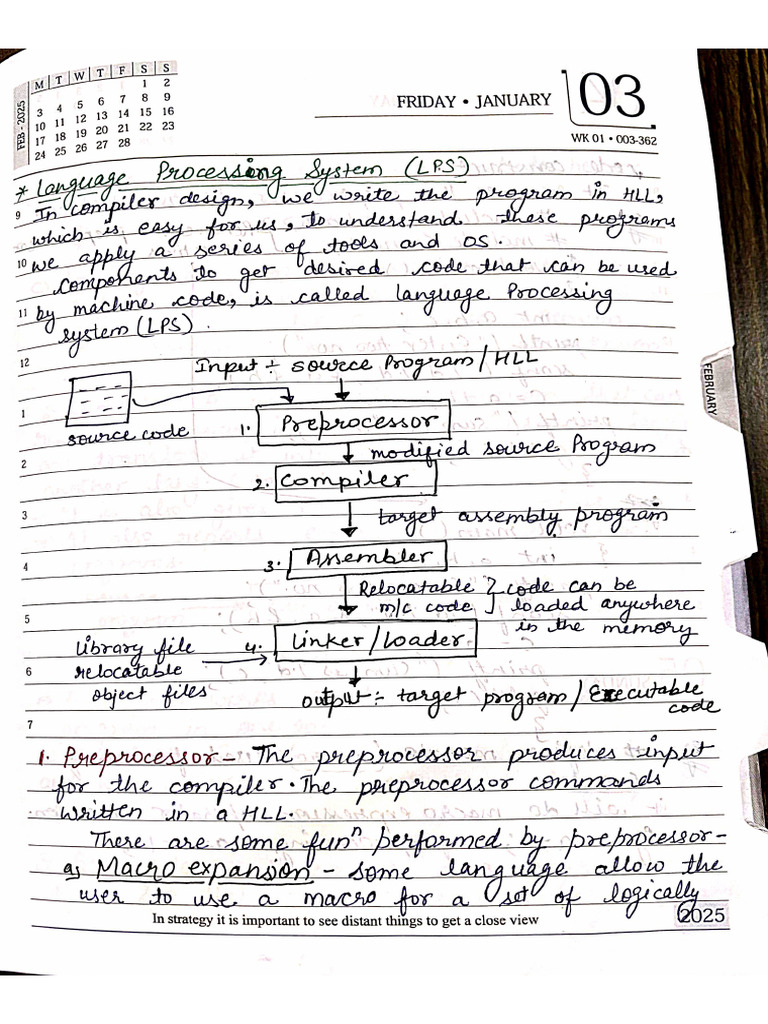 M T W T F S S
1 2
3 4 5 6 7 8 9
10 11 12 13 14 15 16
17 18 19 20 21 22 23
24 25 26 27 28
FEB - 2025
FRIDAY • JANUARY 03
WK 01 • 003-362
* Language Processing System (LPS)
9 In compiler design, we write the program in HLL,
which is easy for us, to understand these programs
10 we apply a series of tools and OS.
components to get desired code that can be used
11 by machine code, is called language Processing
system (LPS).
12
Input :- source Program / HLL
1
source code
1. Preprocessor
modified source Program
2
2. Compiler
3
target assembly program
4
3. Assembler
Relocatable } code can be
m/c code } loaded anywhere
5
in the memory
Library file
4. Linker/Loader
6 relocatable
object files
output :- target program / Executable
code
7
FEBRUARY
1. Preprocessor - The preprocessor produces input
for the compiler. The preprocessor commands
written in a HLL.
There are some funⁿ performed by preprocessor -
a) Macro expansion - some language allow the
user to use a macro for a set of logically
In strategy it is important to see distant things to get a close view
2025